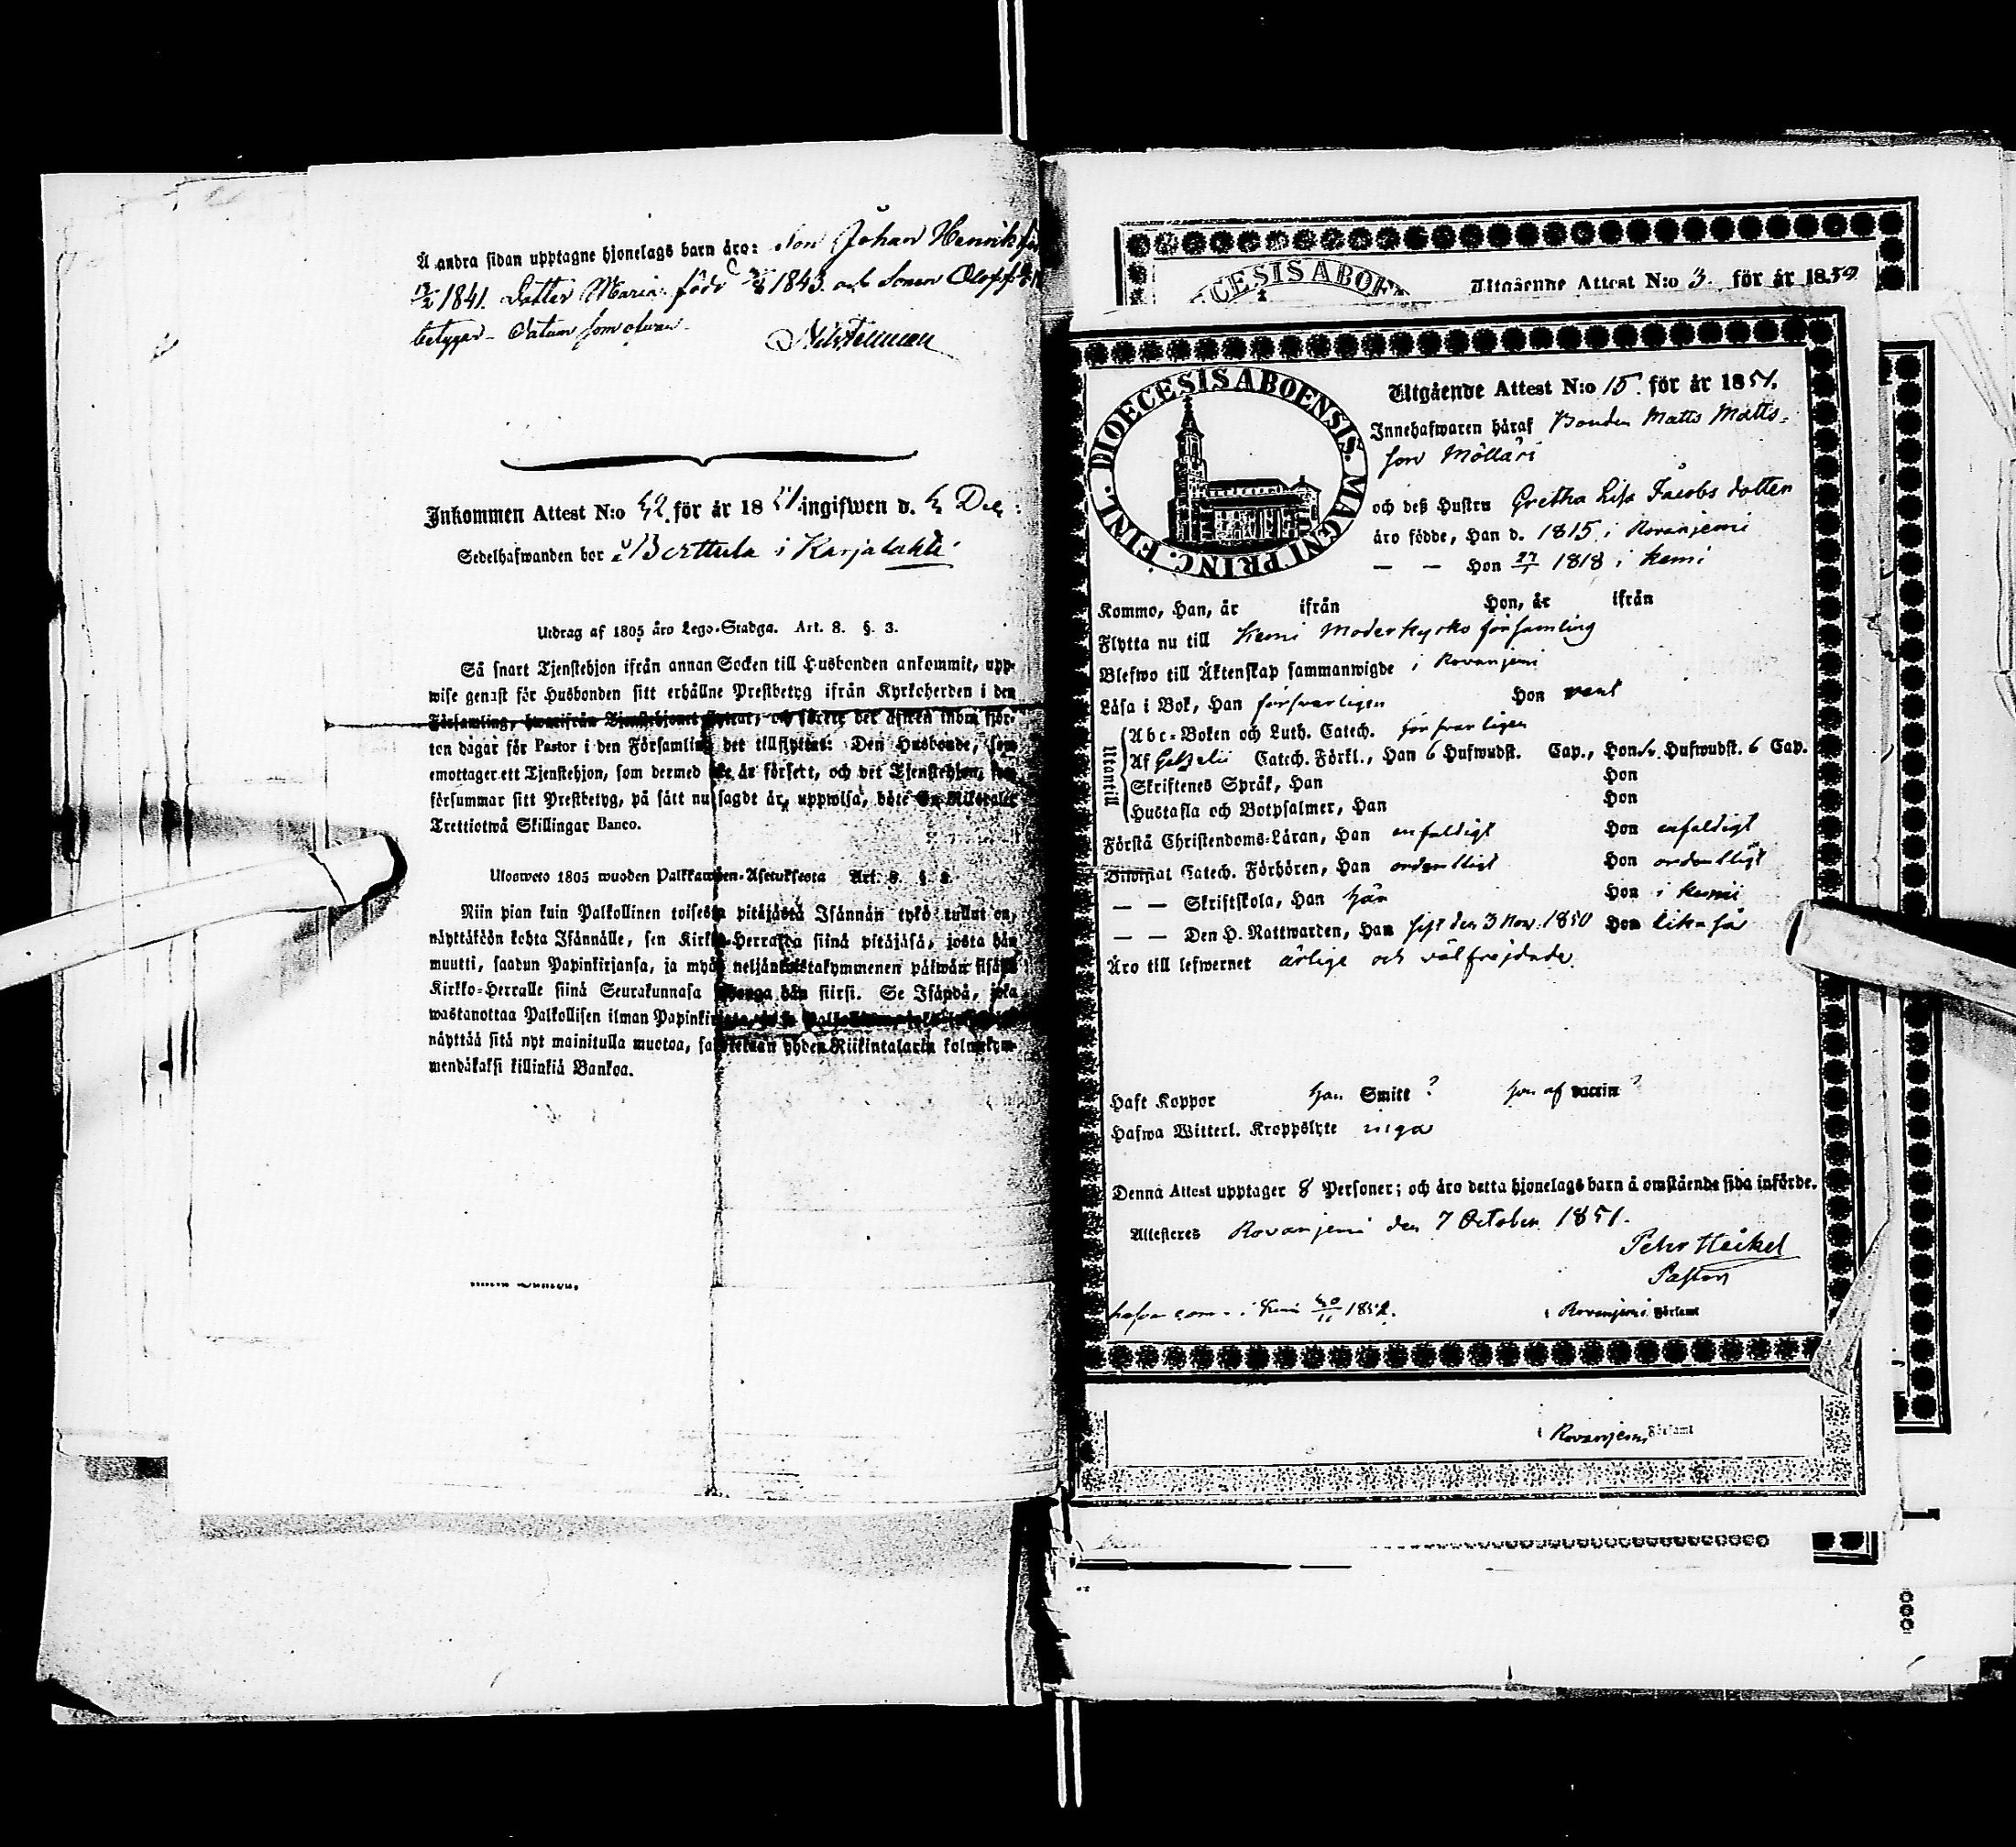 Å andra sidan upptagne hjonelags barn äro: Son Johan Henrik
1841. Dotter Maria född 1843. och Sonen Olof
betygar datum som ofvan
Inkommen Attest N:o 42. för år 1851 ingifwen d. 4 Dec:
Sedelhafwanden bor å Berttula i Karjalahti
Utdrag af 1805 års Lego-Stadga. Art. 8. §. 3.
Så snart Tjenstehjon ifrån annan Socken till Husbonden ankommit, upp-
wise genast för Husbonden sitt erhållne Prestbetyg ifrån Kyrkoherden i den
Församling, hwarifrån Tjenstehjonet flyttat, och förete det äfwen inom fjor-
ton dagar för Pastor i den Församling det tillflyttat: Den Husbonde, som
emottager ett Tjenstehjon, som dermed icke är försett, och det Tjenstehjon, som
försummar sitt Prestbetyg, på sätt nu sagdt är, uppwisa, böte En Riksdaler
Trettiotwå Skillingar Banco.
Ulosweto 1805 wuoden Palkkawäen-Asetuksesta Art. 8. §. 3.
Niin pian kuin Palkollinen toisesta pitäjästä Isännän tykö tullut on,
näyttäköön kohta Isännälle, sen Kirkko-Herralta siinä pitäjäsä, josta hän
muutti, saadun Papinkirjansa, ja myös neljäntoistakymmenen päiwän sisällä
Kirkko-Herralle siinä Seurakunnasa jhonga hän siirsi. Se Isändä, joka
wastanottaa Palkollisen ilman Papinkirjata,
näyttää sitä nyt mainitulla muotoa, sakotetaan yhden Riikintalarin kolmekym-
mendäkaksi killinkiä Bankoa.
Utgående Attest N:o 3. för år 1852
DIOECESIS ABOENSIS. MAGNI PRINC. FINL.
Utgående Attest N:o 15. för år 1851.
Innehafwaren häraf Bonden Matts Matts-
son Mölläri
och deß Hustru Gretha Lisa Jacobs dotter
äro födde, Han d. 1815 i Rovanjemi
— — Hon 27/1 1818 i Kemi
Kommo, Han, år ifrån Hon, år ifrån
Flytta nu till Kemi Moderkyrko församling
Blefwo till Äktenskap sammanwigde i Rovanjemi
Läsa i Bok, Han försvarligen Hon vext
Utantill
Abc-Boken och Luth. Catech. försvarligen
Af Gezelii Catech. Förkl., Han 6 Hufwudst. Cap., Hon Hufwudst. 6 Cap.
Skriftenes Språk, Han Hon
Hustafla och Botpsalmer, Han Hon
Förstå Christendoms-Läran, Han enfaldigt Hon enfaldigt
Bewistat Catech. Förhören, Han ordentligt Hon ordentligt
— — Skriftskola, Han här Hon i Kemi
— — Den H. Nattwarden, Han sist den 3 Nov. 1850 Hon lika så
Äro till lefwernet ärlige och välfrejdade.
Haft Koppor han Smitt? hon af vaccin?
Hafwa Witterl. Kroppslyte inga
Denna Attest upptager 8 Personer; och äro detta hjonelags barn å omstående sida införde.
Attesteres Rovanjemi den 7 October 1851.
Petr Heikel
Pastor
i Rovanjemi Församl
i Rovanjemi Församl